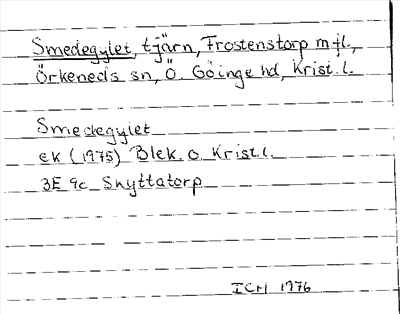 Smedegylet, tjärn, Frostenstorp m fl.,
Örkeneds sn, Ö. Göinge hd, Krist. l.
Smedegylet
ek (1975) Blek. o. Krist. l.
3E 9c Snyttatorp
ICH 1976